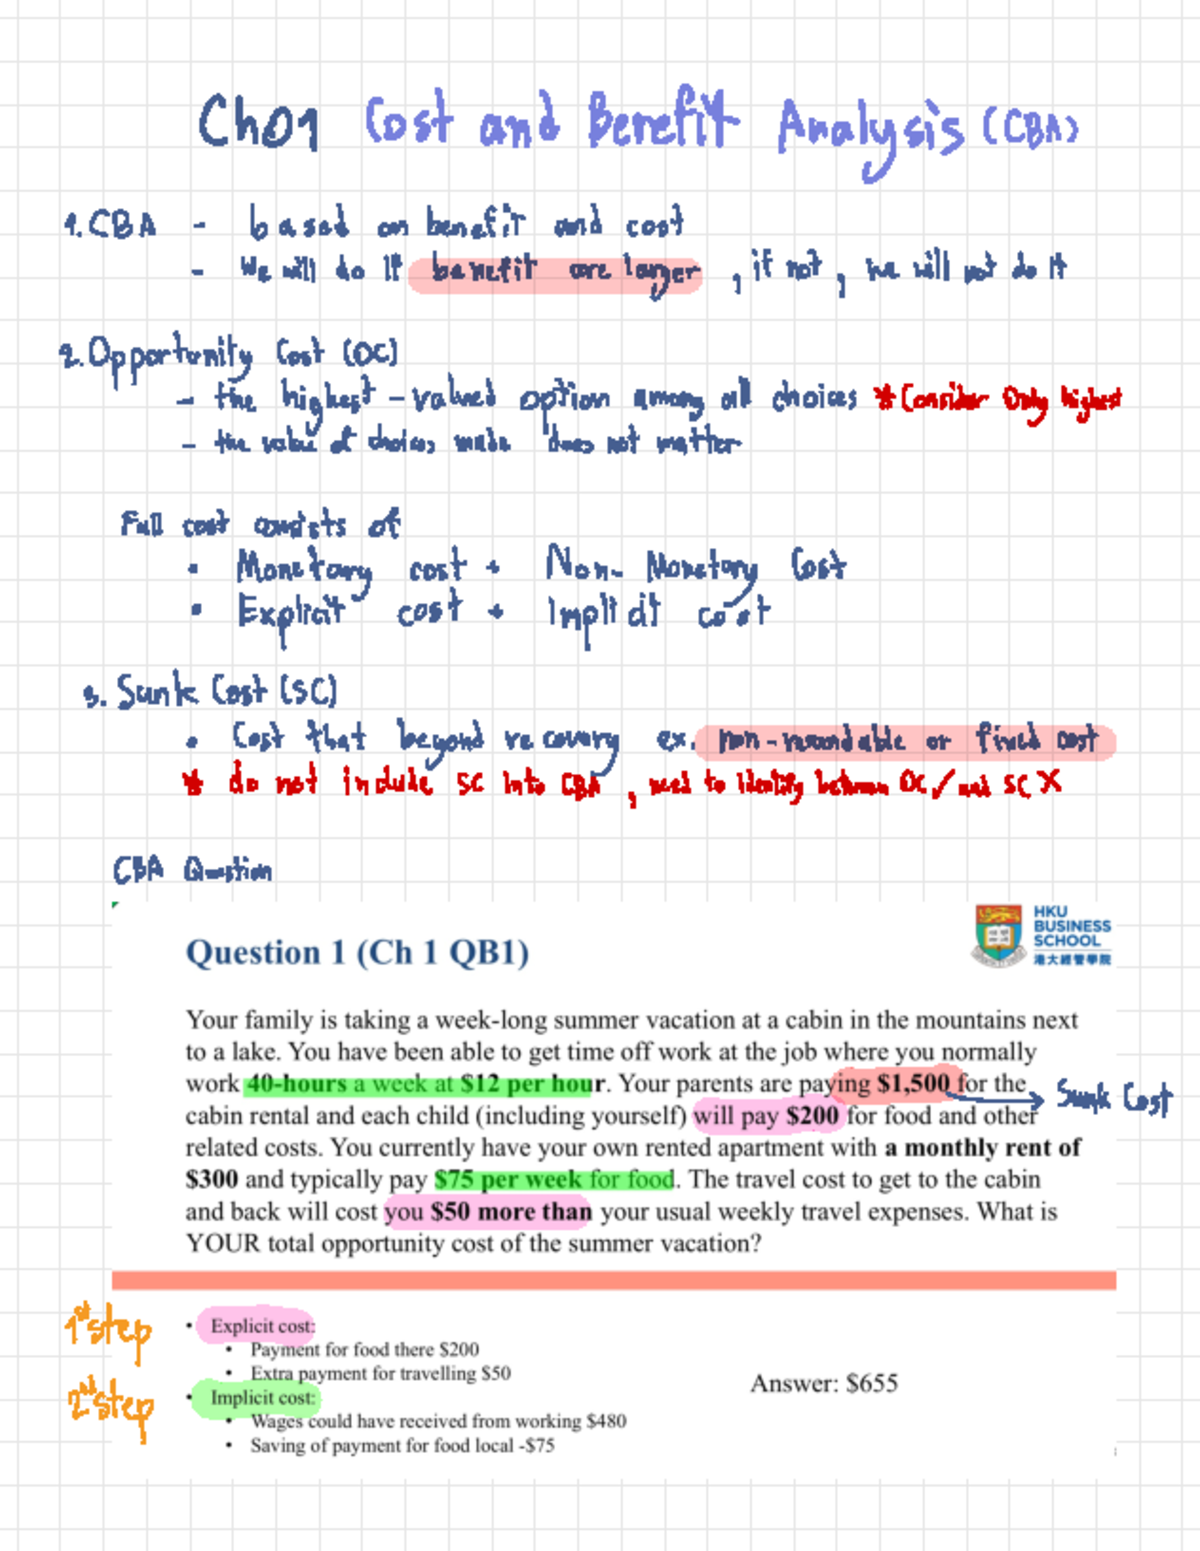 Ch01 Cost and Benefit Analysis (CBA)
1. CBA - based on benefit and cost
- We will do if benefit are larger , if not , we will not do it
2. Opportunity Cost (OC)
- the highest - valued option among all choices * Consider Only highest
- the value of choices made does not matter
Full cost consists of
• Monetary cost + Non-Monetary Cost
• Explicit cost + Implicit cost
3. Sunk Cost (SC)
• Cost that beyond recovery ex. non- or fixed cost
* do not include SC into CBA , need to identify between OC / and SC X
CBA Question
HKU
BUSINESS
SCHOOL
港大經管學院
Question 1 (Ch 1 QB1)
Your family is taking a week-long summer vacation at a cabin in the mountains next
to a lake. You have been able to get time off work at the job where you normally
work 40-hours a week at $12 per hour. Your parents are paying $1,500 for the
cabin rental and each child (including yourself) will pay $200 for food and other
Sunk Cost
related costs. You currently have your own rented apartment with a monthly rent of
$300 and typically pay $75 per week for food. The travel cost to get to the cabin
and back will cost you $50 more than your usual weekly travel expenses. What is
YOUR total opportunity cost of the summer vacation?
1st step
• Explicit cost:
• Payment for food there $200
• Extra payment for travelling $50
2nd step
• Implicit cost:
• Wages could have received from working $480
• Saving of payment for food local -$75
Answer: $655